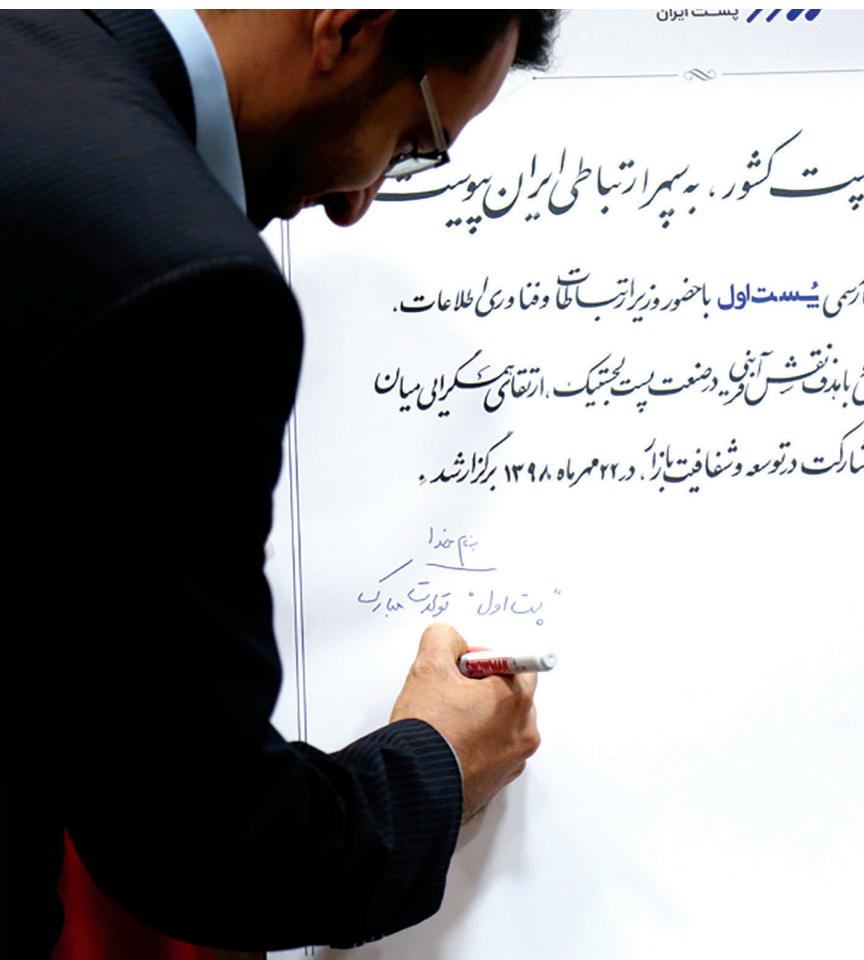 پست ایران
پست کشور، به سپهر ارتباطی ایران پیوست
رسمی پُست‌اول باحضور وزیر ارتباطات و فناوری اطلاعات.
باهدف نقش آفرینی درصنعت پست لجستیک، ارتقای همگرایی میان
مشارکت درتوسعه وشفافیت بازار، در ۲۲ مهرماه ۱۳۹۸ برگزار شد.
بنام خدا
"پست اول" تولدت مبارک